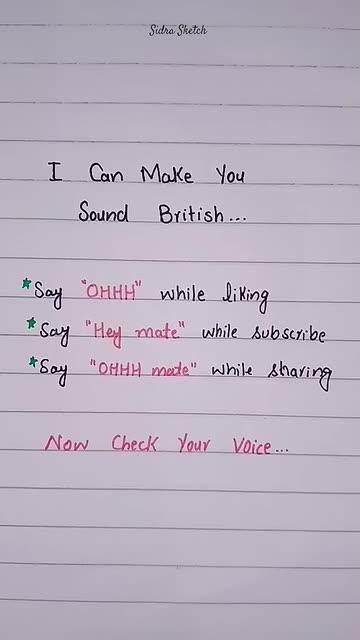 Sidra Sketch
I Can Make You
Sound British...
*Say "OHHH" while liking
*Say "Hey mate" while subscribe
*Say "OHHH mate" while sharing
Now Check Your Voice...